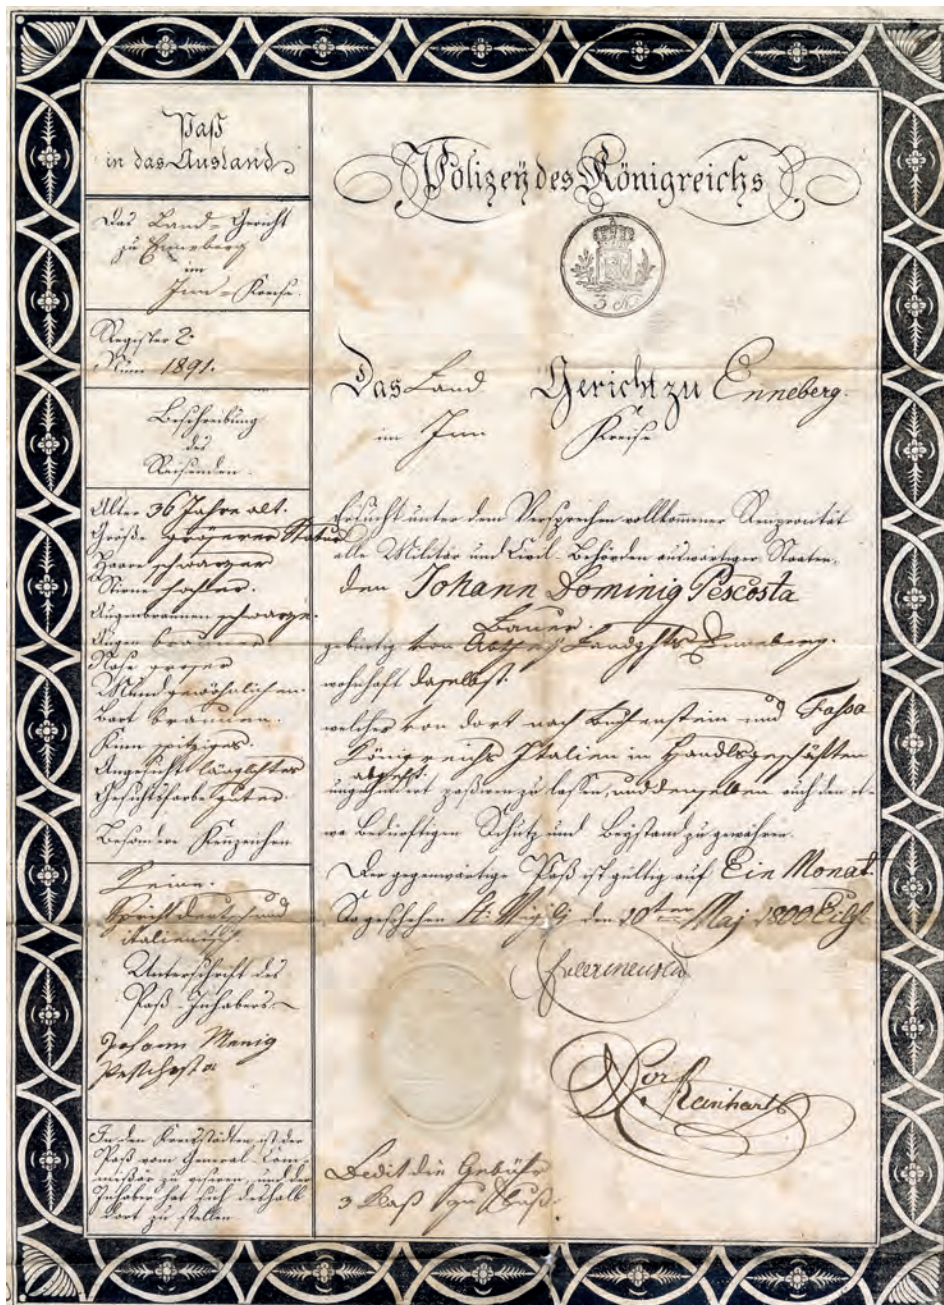 Paß
in das Ausland
Das Land-Gericht
zu Enneberg
im
Inn-Kreise.
Register 2.
Num 1891.
Beschreibung
des
Reisenden.
Alter 36 Jahre alt.
Größe größerer Statur
Haare schwarzer
Stirne
Augenbraunen schwarze.
Augen braune
Nase großer
Mund gewöhnlichen.
Bart braunen.
Kinn spitziges.
Angesicht länglichter
Gesichtsfarbe guter.
Besondere Kennzeichen
Keine.
Spricht deutsch und
italienisch.
Unterschrift des
Paß-Inhabers
Johann Menig
In den Kreisstädten ist der
Paß vom General-Com-
missär zu visiren, und der
Inhaber hat sich deshalb
dort zu stellen
Polizeÿ des Königreichs
3 K
Das Land Gericht zu Enneberg.
im Inn Kreise
Ersucht unter dem Versprechen vollkommner Reciprocität
alle Militär und Civil-Behörden auswärtiger Staaten,
den Johann Dominig Pescosta
Bauer.
gebürtig von Landgchts Enneberg.
wohnhaft daselbst.
welcher von dort nach Buchenstein und Fassa
Königreichs Italien in Handlsgeschäften
abgeht.
ungehindert paßiren zu lassen, und demselben auch den et-
wa bedürftigen Schutz und Beystand zu gewähren.
Der gegenwärtige Paß ist gültig auf Ein Monat.
So geschehen St: Vigili den 20ten Maj 1800 Eilf
Reinhart
die Gebühr
3